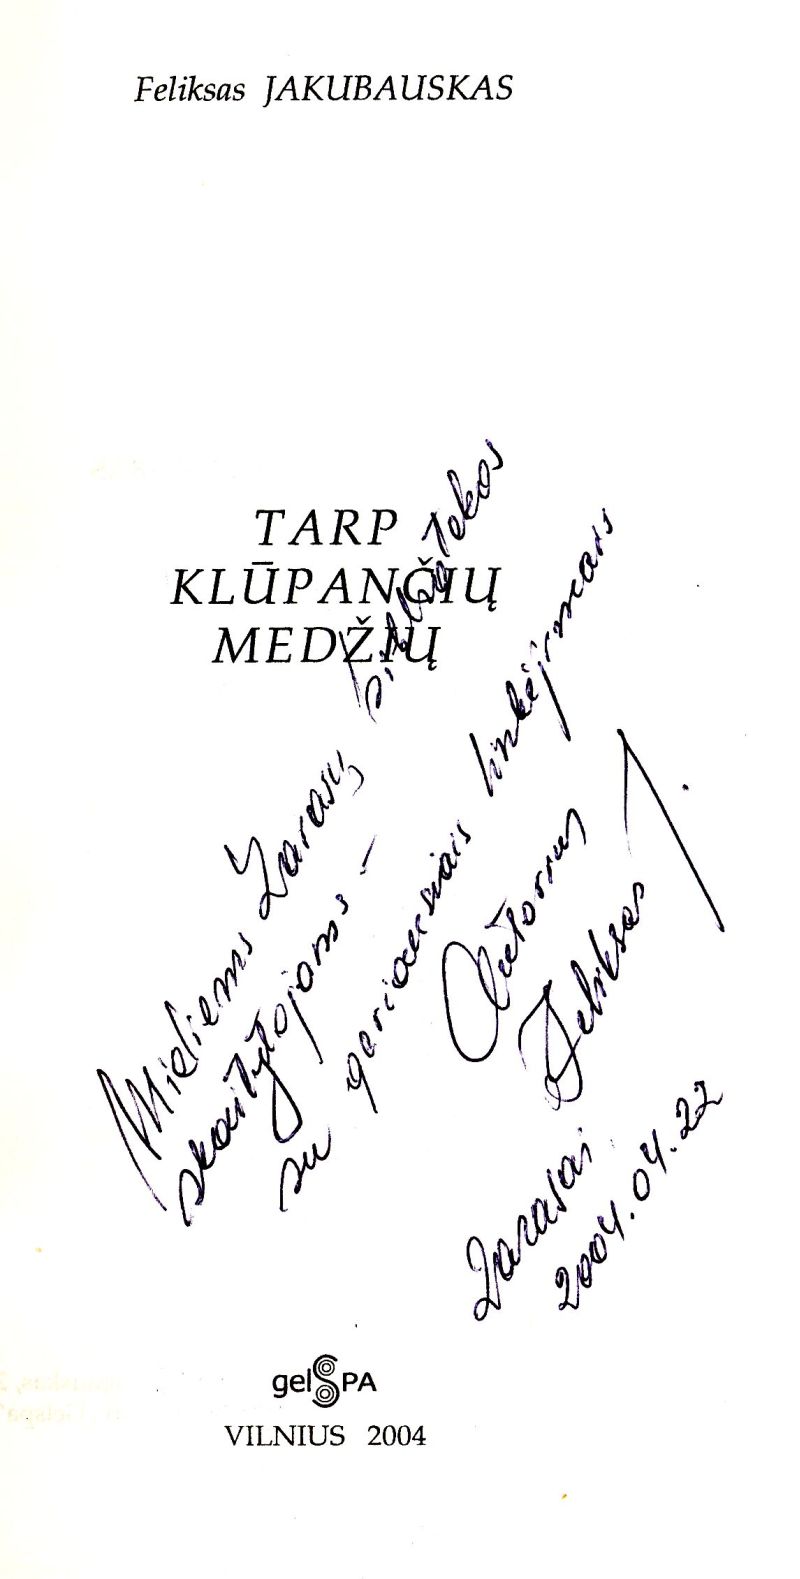 Feliksas JAKUBAUSKAS
TARP
KLŪPANČIŲ
MEDŽIŲ
Mieliems Zarasų bibliotekos
skaitytojams –
su geriausiais linkėjimais
Autorius
Feliksas J.
Zarasai
2004.04.22
gelSPA
VILNIUS 2004